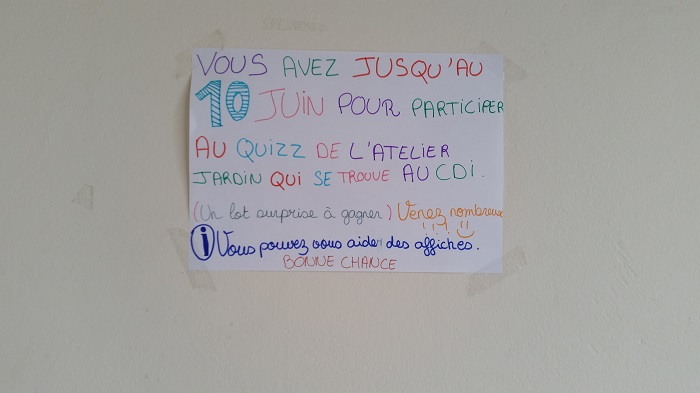 VOUS AVEZ JUSQU'AU
10 JUIN POUR PARTICIPER
AU QUIZZ DE L'ATELIER
JARDIN QUI SE TROUVE AU CDI.
(Un lot surprise à gagner) Venez nombreux
!!!!
i Vous pouvez vous aider des affiches.
BONNE CHANCE